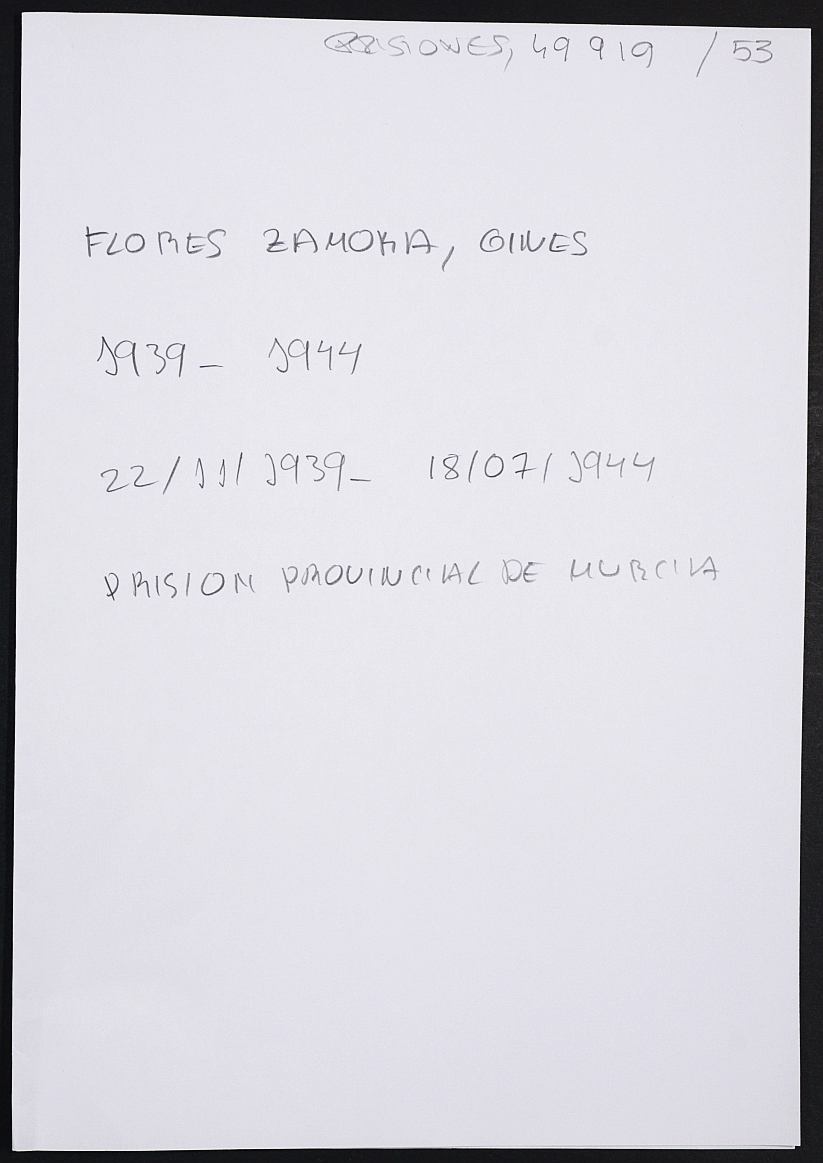 PRISIONES, 49919 / 53
FLORES ZAMORA, GINES
1939- 1944
22/11/1939- 18/07/1944
PRISION PROVINCIAL DE MURCIA